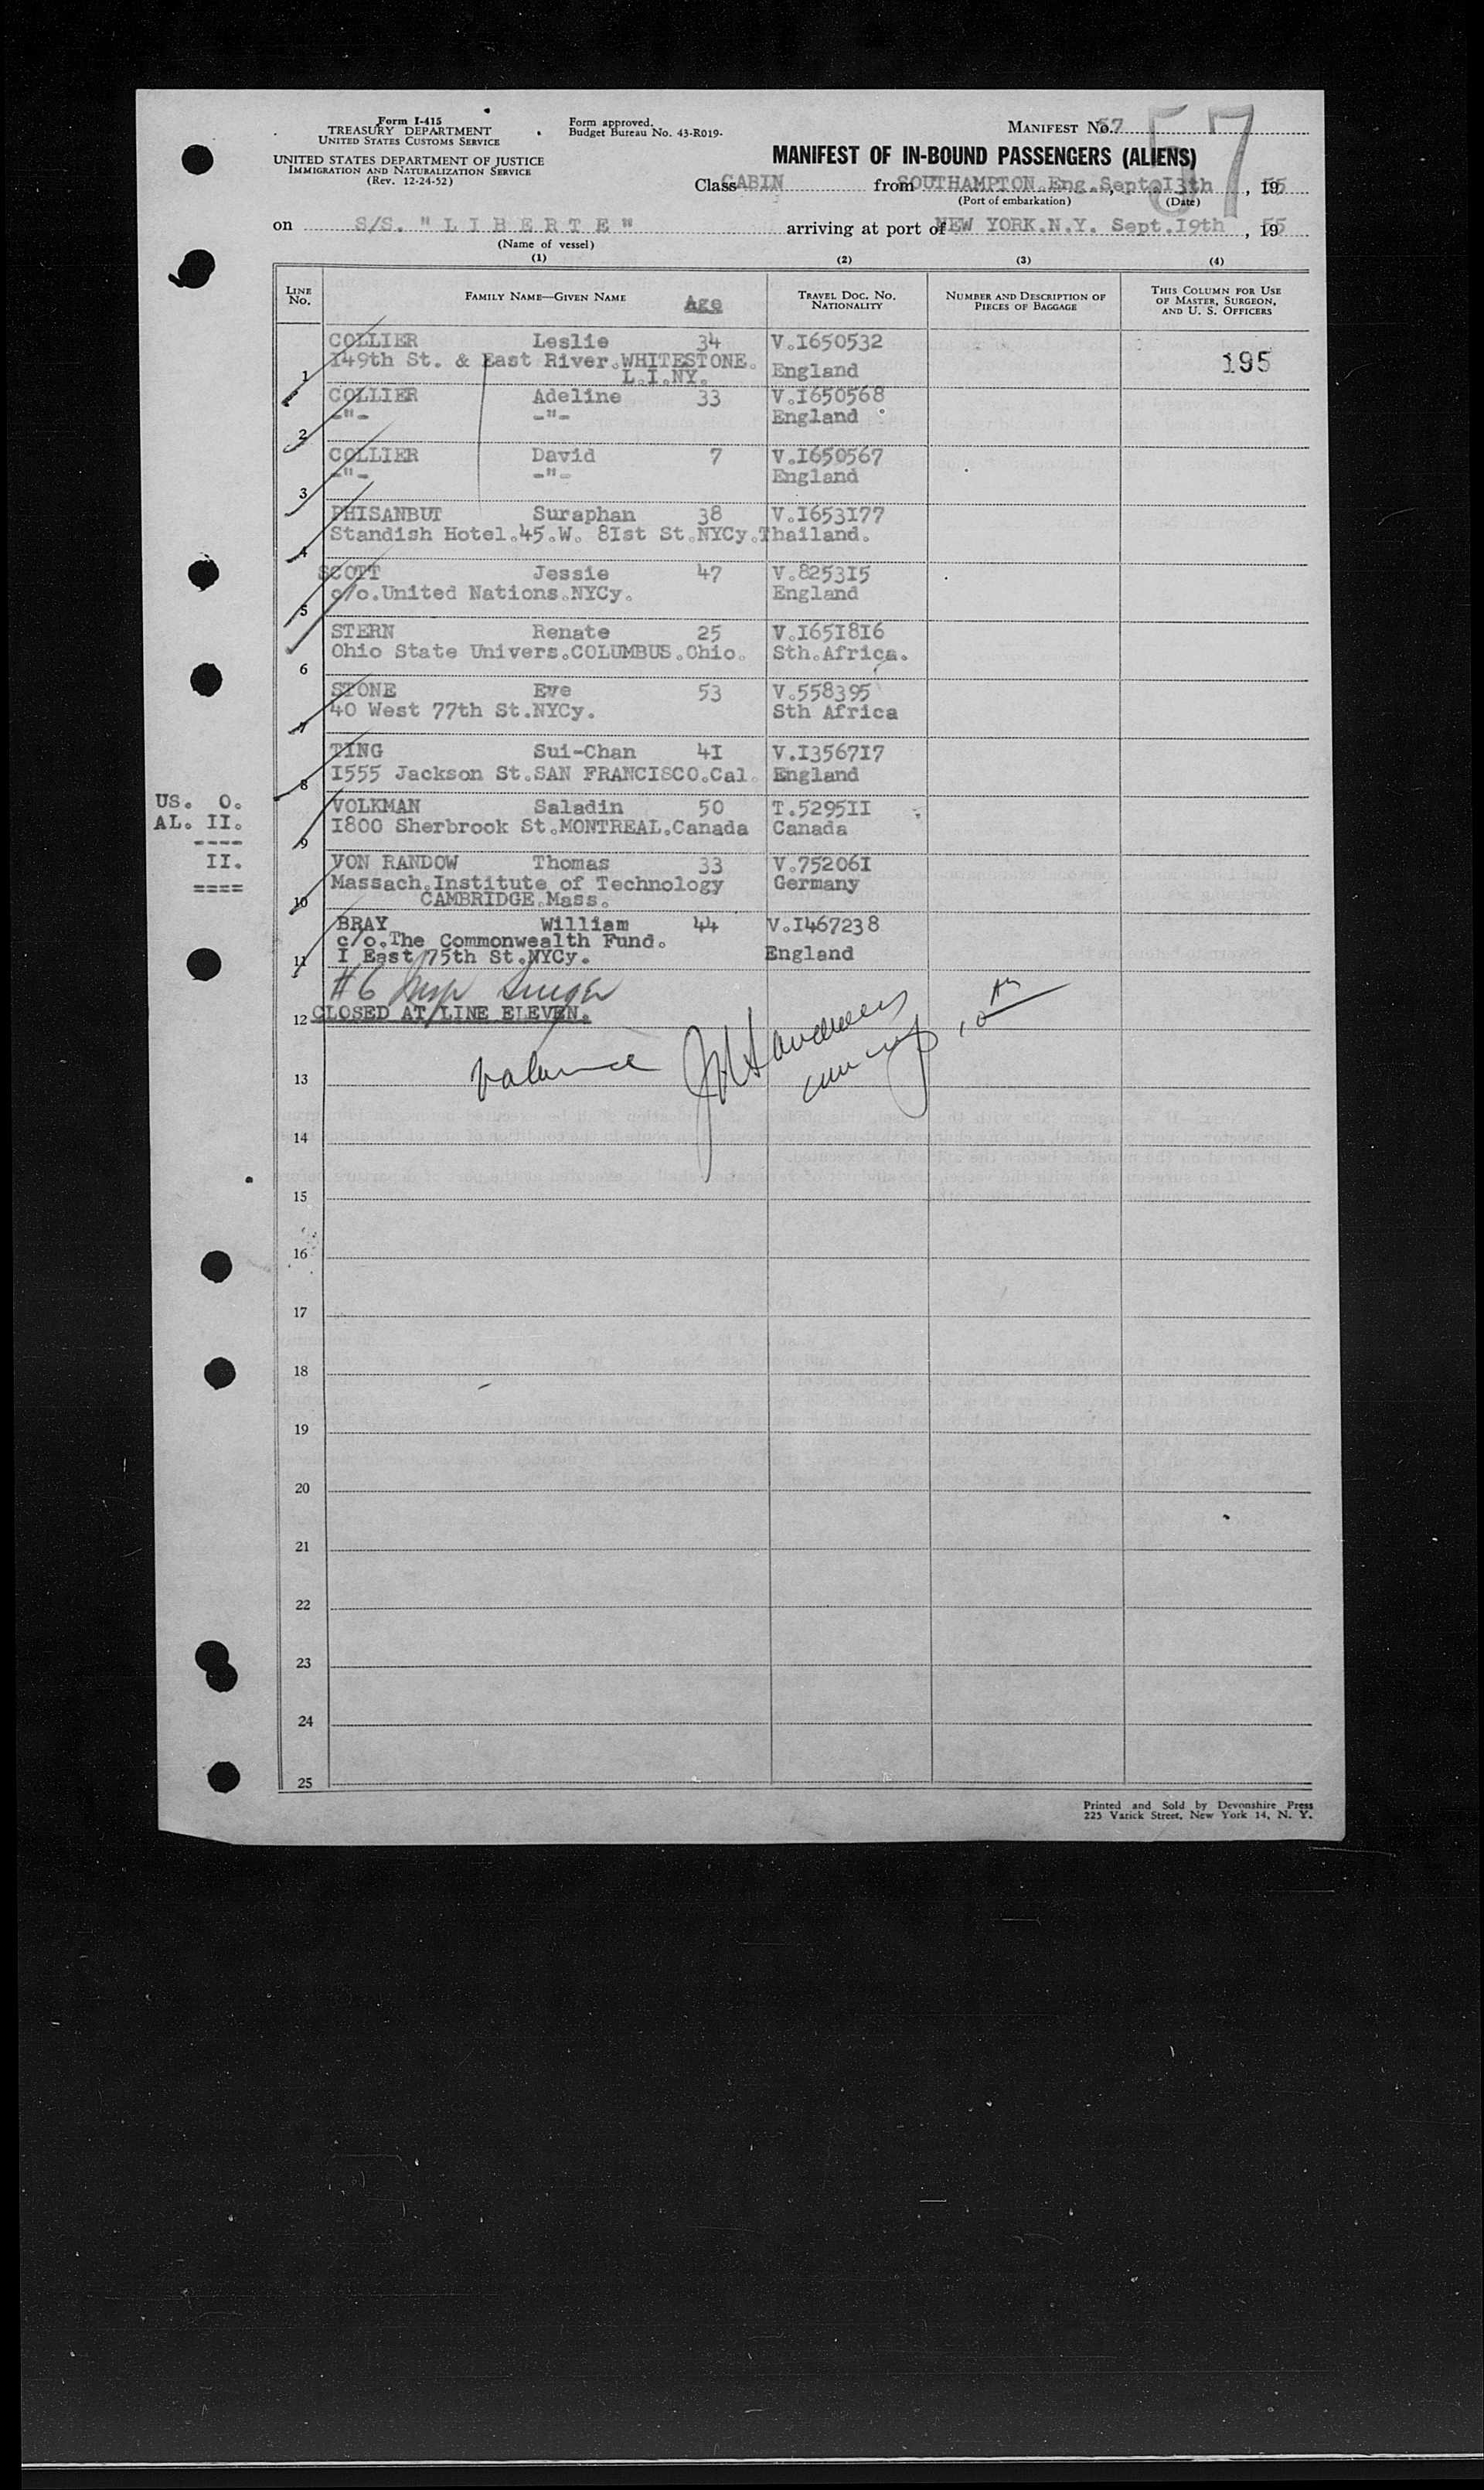 Form I-415
TREASURY DEPARTMENT
UNITED STATES CUSTOMS SERVICE
UNITED STATES DEPARTMENT OF JUSTICE
IMMIGRATION AND NATURALIZATION SERVICE
(Rev. 12-24-52)
Form approved.
Budget Bureau No. 43-R019-
MANIFEST No. 57
57
MANIFEST OF IN-BOUND PASSENGERS (ALIENS)
Class CABIN from SOUTHAMPTON.Eng.Sept.I3th, 19 55
(Port of embarkation) (Date)
on S/S. "L I B E R T E" arriving at port of NEW YORK.N.Y. Sept.I9th, 19 55
(Name of vessel)
(1) (2) (3) (4)
LINE No. FAMILY NAME—GIVEN NAME Age TRAVEL DOC. NO. NATIONALITY NUMBER AND DESCRIPTION OF PIECES OF BAGGAGE THIS COLUMN FOR USE OF MASTER, SURGEON, AND U. S. OFFICERS
COLLIER Leslie 34 V.I650532
I49th St. & East River.WHITESTONE. England 195
1 L.I.NY.
COLLIER Adeline 33 V.I650568
-"- -"- England
2
COLLIER David 7 V.I650567
-"- -"- England
3
PHISANBUT Suraphan 38 V.I653I77
Standish Hotel.45.W. 8Ist St.NYCy.Thailand.
4
SCOTT Jessie 47 V.8253I5
c/o.United Nations.NYCy. England
5
STERN Renate 25 V.I65I8I6
Ohio State Univers.COLUMBUS.Ohio. Sth.Africa.
6
STONE Eve 53 V.558395
40 West 77th St.NYCy. Sth Africa
7
TING Sui-Chan 4I V.I3567I7
I555 Jackson St.SAN FRANCISCO.Cal. England
8
US. 0.
AL. II.
----
II.
====
VOLKMAN Saladin 50 T.5295II
I800 Sherbrook St.MONTREAL.Canada Canada
9
VON RANDOW Thomas 33 V.75206I
Massach.Institute of Technology Germany
10 CAMBRIDGE.Mass.
BRAY William 44 V.I467238
c/o.The Commonwealth Fund.
11 I East 75th St.NYCy. England
#6
12 CLOSED AT LINE ELEVEN.
13
14
15
16
17
18
19
20
21
22
23
24
25
Printed and Sold by Devonshire Press
225 Varick Street, New York 14, N. Y.